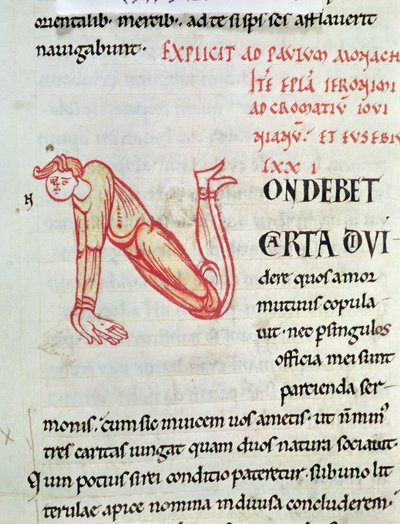 orientalib. mercib. ad te si ipses afflauerit
nauigabunt.
EXPLICIT AD PAULUM MONACH
ITE EPLA IERONIMI
AD CROMATIU IOUI
NIANU. ET EUSEBIU
LXX I
N
ON DEBET
CARTA DIVI
dere quos amor
mutuus copula
uit. nec p singulos
officia mei sunt
parcienda ser
monis. cum sic inuicem uos ametis. ut n min
tres caritas iungat quam duos natura sociauit.
Quin potius si rei conditio pateretur. sub uno lit
terulae apice nomina indiuisa concluderem.